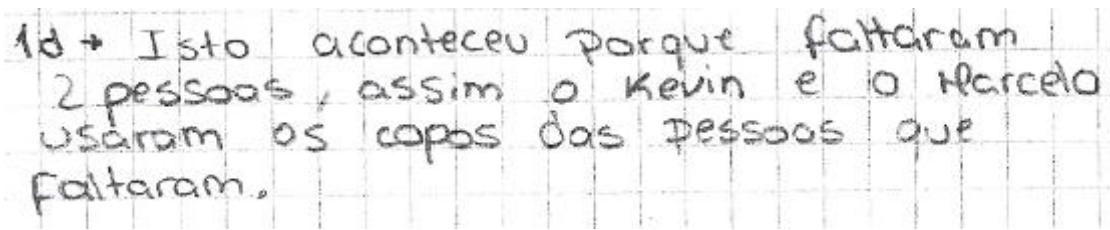 1d → Isto aconteceu porque faltaram
2 pessoas, assim o Kevin e o Marcelo
usaram os copos das pessoas que
faltaram.